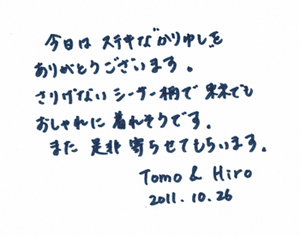 今日は ステキなかりゆしを
ありがとうございます。
さりげないシーサー柄で 東京でも
おしゃれに 着れそうです。
また 是非 寄らせてもらいます。
Tomo & Hiro
2011.10.26